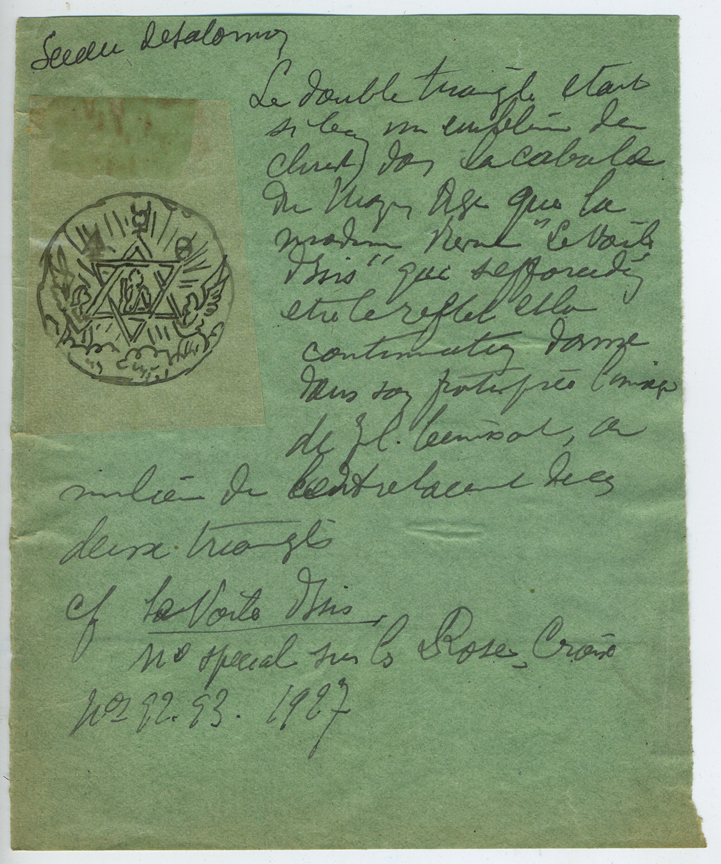 Sceau de Salomon
Le double triangle étant
si bien un emblème du
christ dans la cabale
du Moyen Age que la
moderne Revue "Le Voile
d'Isis" qui s'efforce d'en
être le reflet et la
continuation donne
dans son frontispice l'image
de J.C. au
milieu de l'entrelacement de ces
deux triangles
cf Le Voile d'Isis,
no special sur les Roses-Croix
nos 92.93. 1927